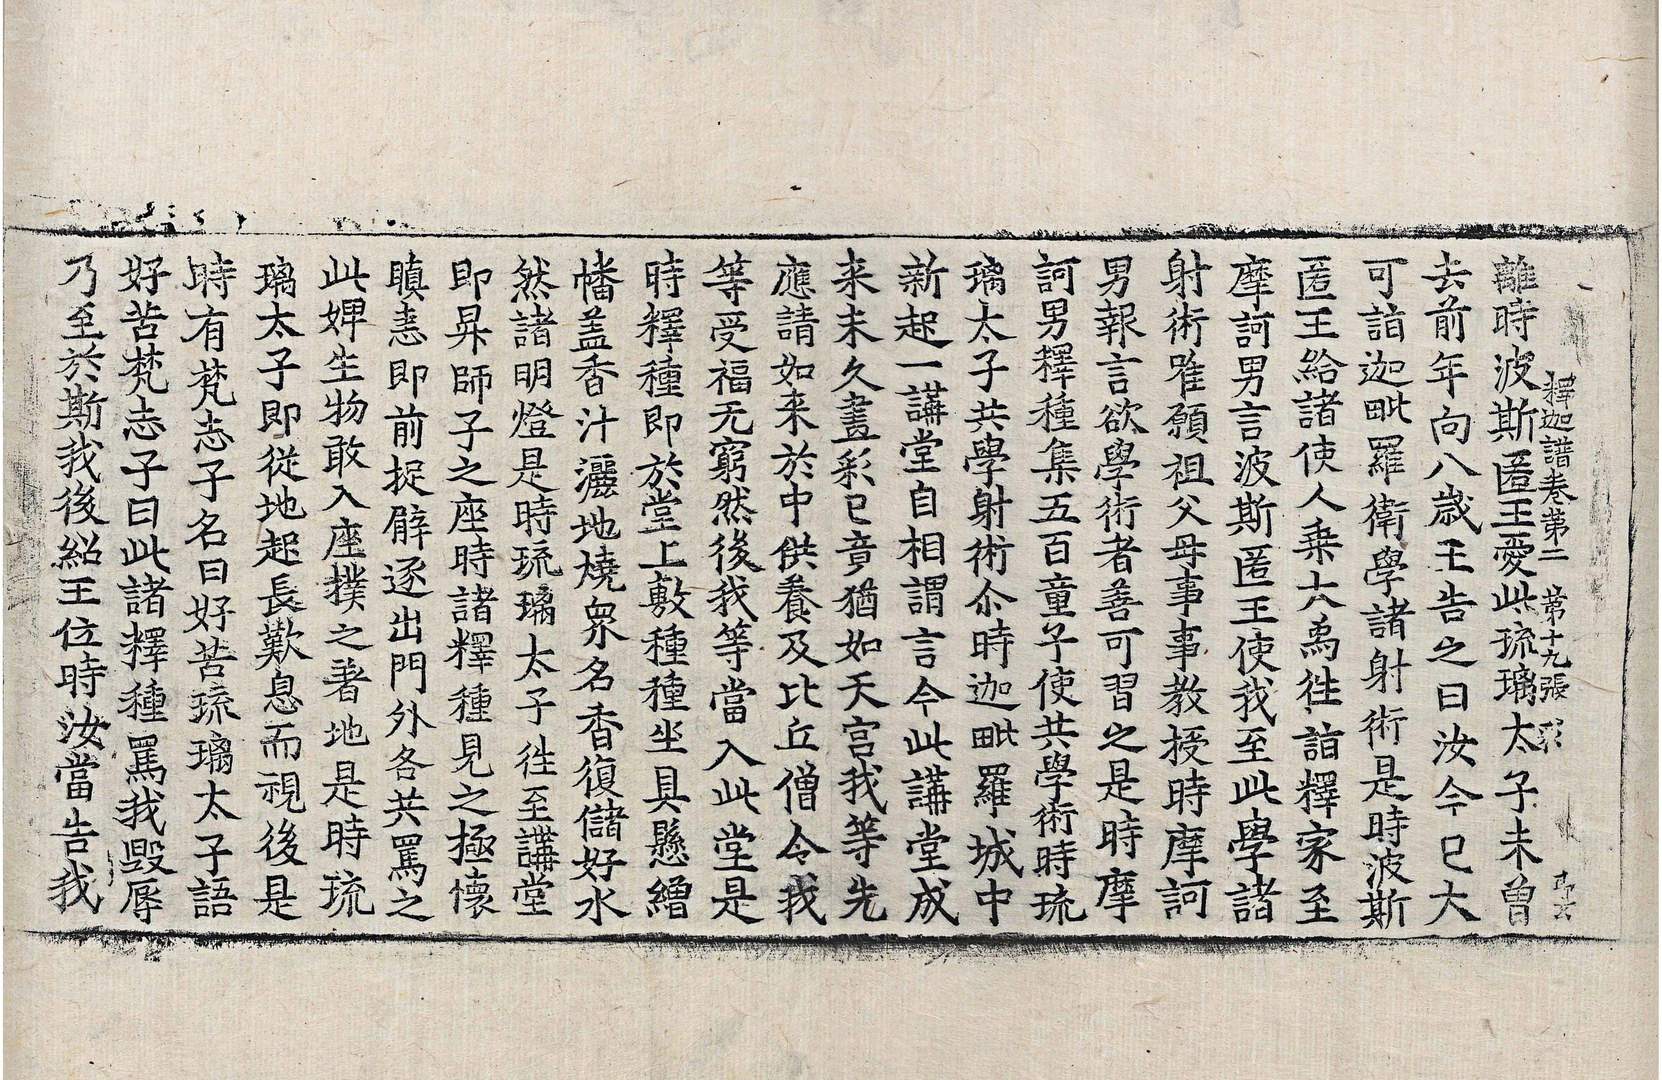 釋迦譜卷第二　第十九張
離時波斯匿王愛此琉璃太子未曾
去前年向八歲王告之曰汝今已大
可詣迦毗羅衛學諸射術是時波斯
匿王給諸使人乗大爲徃詣釋家至
摩訶男言波斯匿王使我至此學諸
射術唯願祖父母事事教授時摩訶
男報言欲學術者善可習之是時摩
訶男釋種集五百童子使共學術時琉
璃太子共學射術尒時迦毗羅城中
新起一講堂自相謂言今此講堂成
来未久畫彩已竟猶如天宫我等先
應請如来於中供養及比丘僧令我
等受福无窮然後我等當入此堂是
時釋種即於堂上敷種種坐具懸繒
幡盖香汁灑地燒衆名香復儲好水
然諸明燈是時琉璃太子徃至講堂
即昇師子之座時諸釋種見之極懷
瞋恚即前捉臂逐出門外各共罵之
此婢生物敢入座撲之著地是時琉
璃太子即從地起長歎息而視後是
時有梵志子名曰好苦琉璃太子語
好苦梵志子曰此諸釋種罵我毀辱
乃至於斯我後紹王位時汝當告我